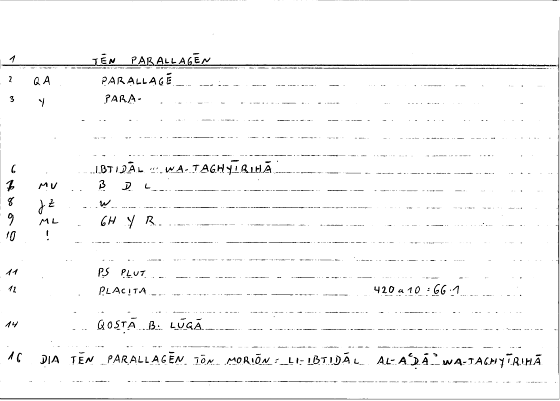 1 TĒN PARALLAGĒN
2 QA PARALLAGĒ
3 Y PARA-
6 IBTIDĀL -- WA-TAGHYĪRIHĀ
7 MV B D L
8 JZ W
9 ML GH Y R
10 !
11 PS PLUT
12 PLACITA 420 a 10 = 66.1
14 QOSṬĀ B. LŪQĀ
16 DIA TĒN PARALLAGĒN TŌN MORIŌN = LI-IBTIDĀL AL-AʿḌĀʾ WA-TAGHYĪRIHĀ